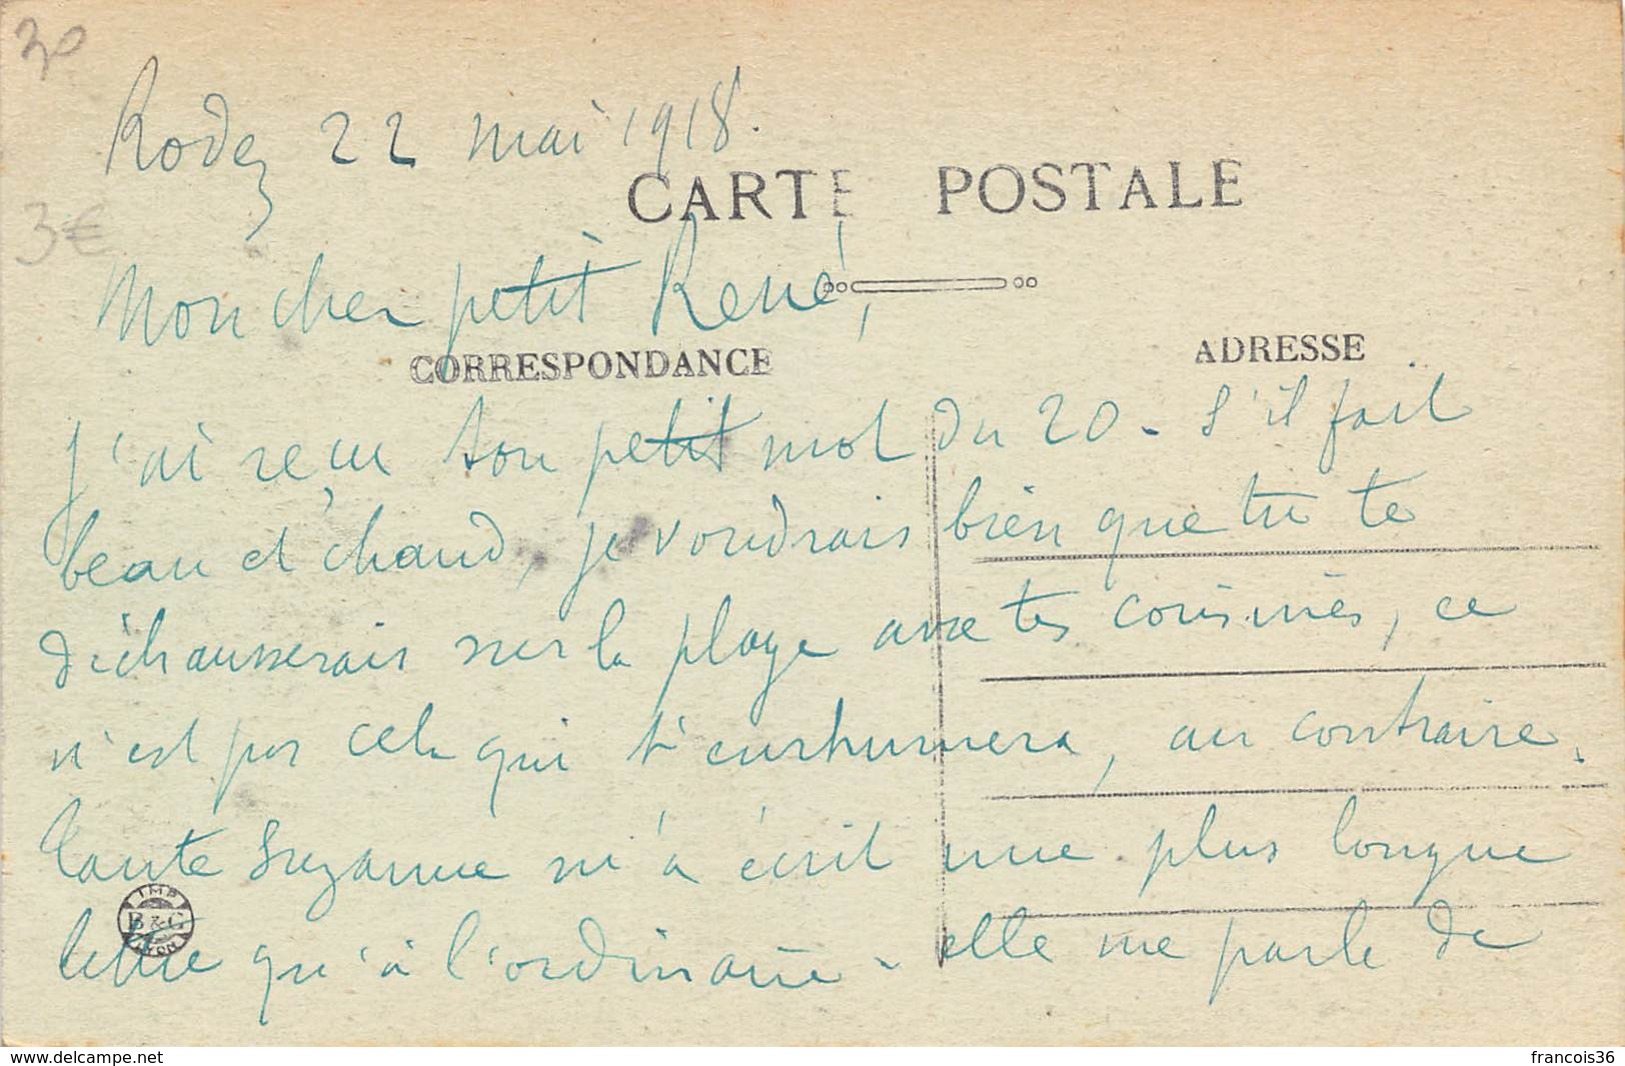 30
Rodez 22 mai 1918.
CARTE POSTALE
3€
Mon cher petit René,
CORRESPONDANCE
ADRESSE
J'ai reçu ton petit mot du 20 - S'il fait
beau et chaud, je voudrais bien que tu te
déchausserais sur la plage avec tes cousines, ce
n'est pas cela qui t'enrhumera, au contraire.
Tante Suzanne m'a écrit une plus longue
IMP B&G LYON
lettre qu'à l'ordinaire - elle me parle de
www.delcampe.net
francois36